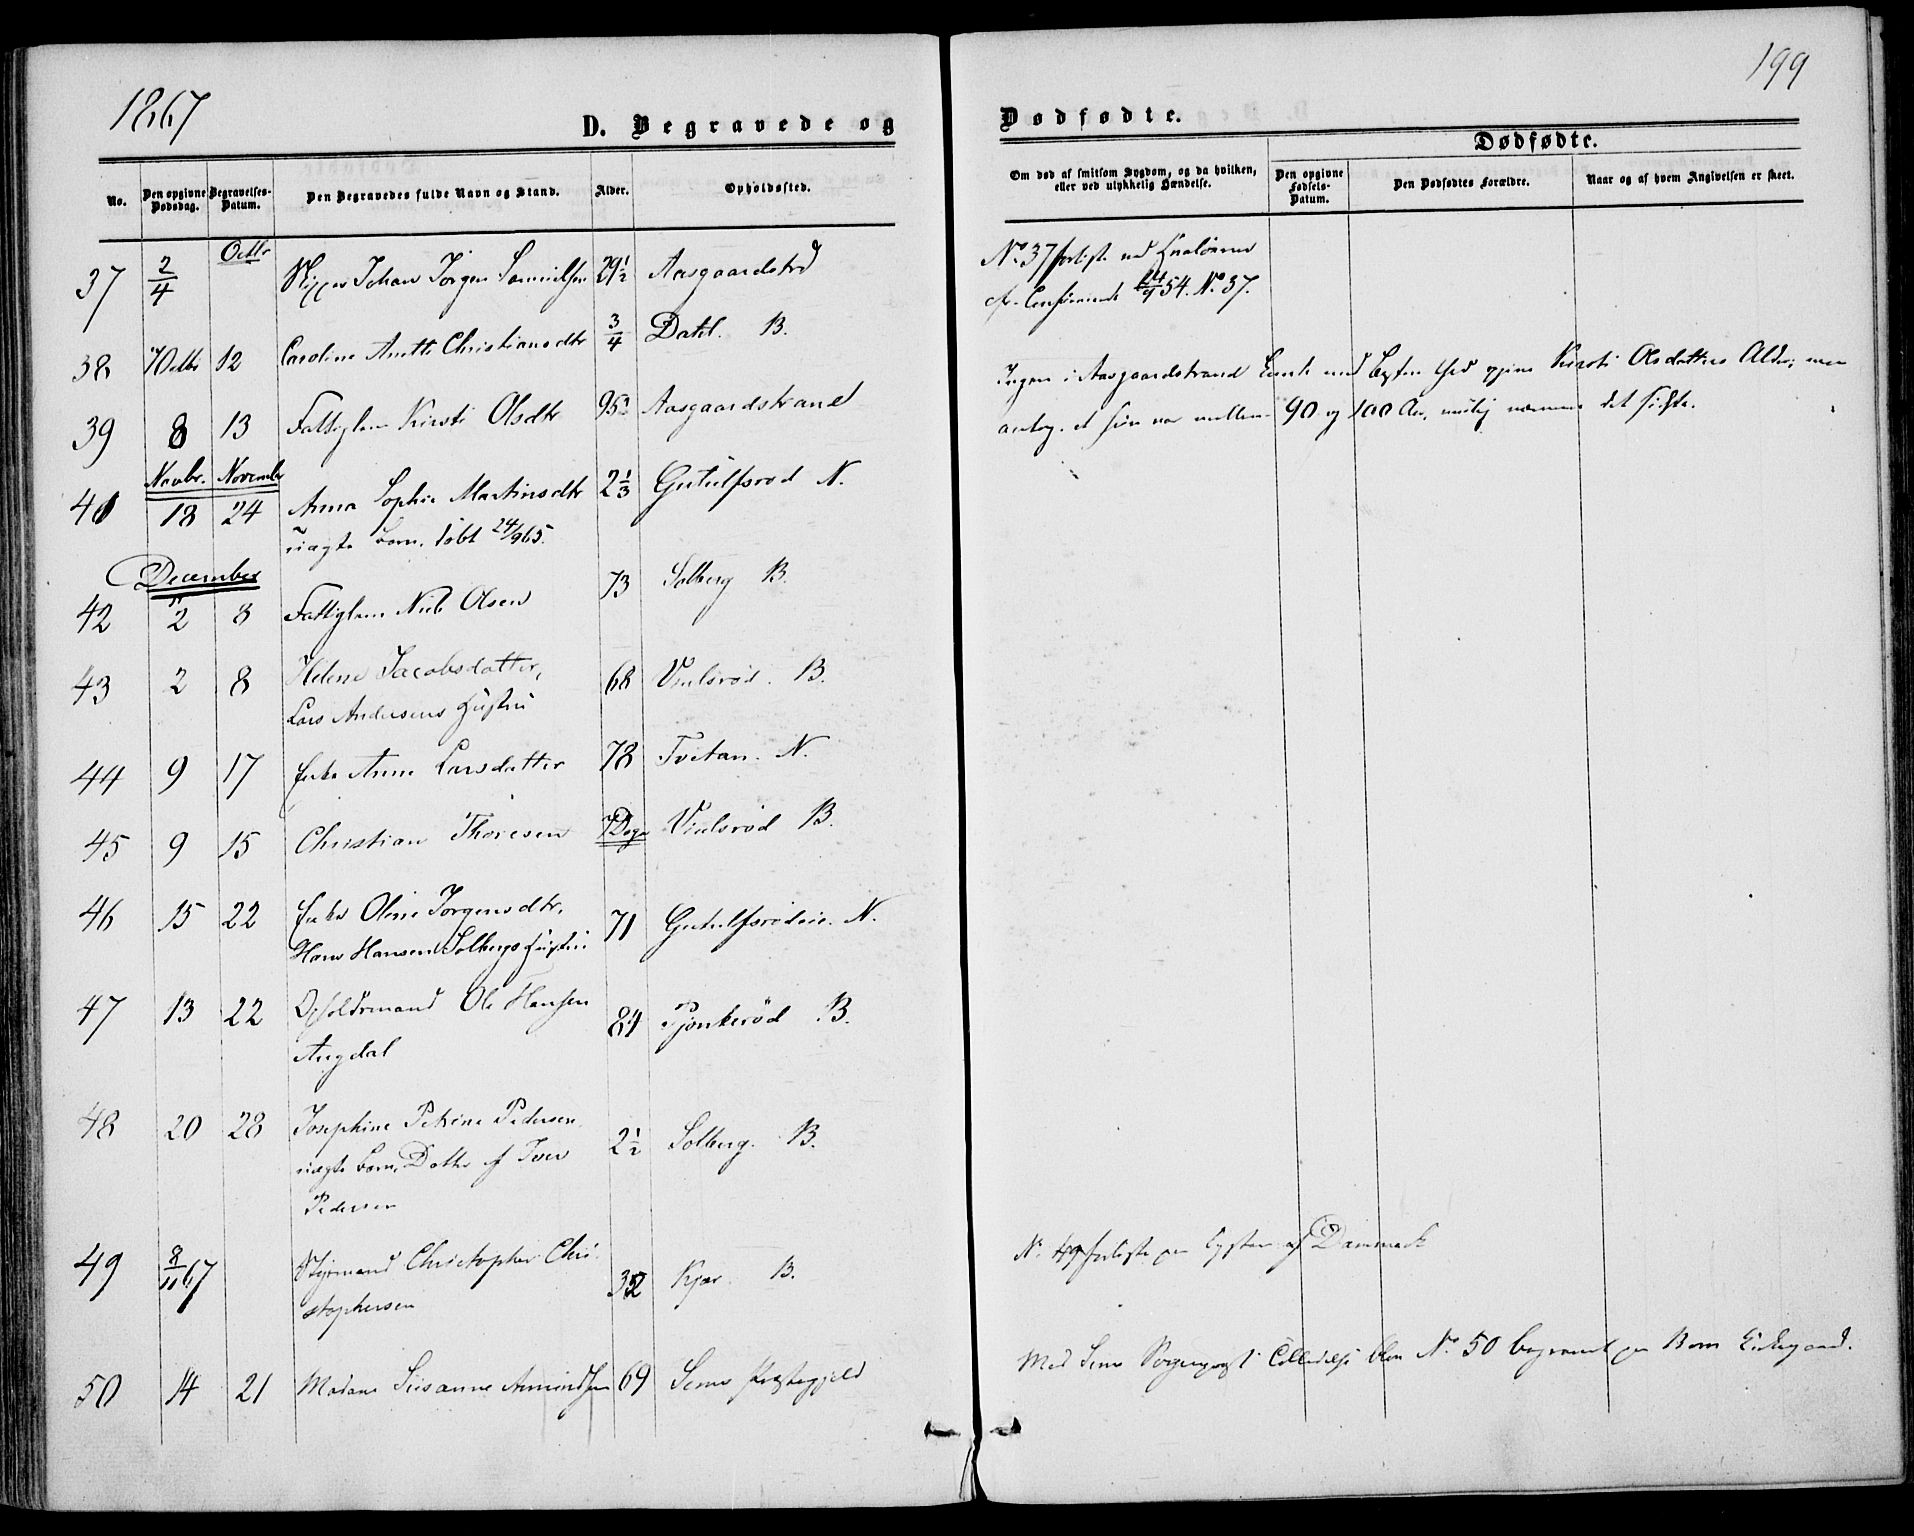 1867
199
D. Begravede og
Dødfødte.
Dødfødte.
No.
Den opgivne Dødsdag.
Begravelses-Datum.
Den Begravedes fulde Navn og Stand.
Alder.
Opholdssted.
Om død af smitsom Sygdom, og da hvilken, eller ved ulykkelig Hændelse.
Den opgivne Fødsels-Datum.
Den Dødfødtes Forældre.
Naar og af hvem Angivelsen er skeet.
Octbr
37 2/4 Skipper Johan Jörgen Samuelsen 29 1/2 Aasgaardstrd
No 37 forliste ved
54. No 37.
38 7 Octbr 12 Caroline Anette Christiansdtr 3/4 Dahl. B.
Ingen i Aasgaardstrand med Kirsti Olsdatters Alder; men
39 8 13 Fattiglem Kirsti Olsdtr 95 Aasgaardstrand
antog at hun var mellem 90 og 100 Aar, det sidste.
Novbr. November
41 18 24 Anna Sophie Martinsdtr 2 1/3 Gutulfsrød N.
uægte Barn. døbt 24/9 65.
December
42 2 8 Fattiglem Niels Olsen 73 Solberg B.
43 2 8 Helene Jacobsdatter, 68 B.
Lars Andersens Hustru
44 9 17 Enke Anne Larsdatter 78 Tvetan. N.
45 9 15 Christian Thoresen 7 Dage B.
46 15 22 Enke Oline Jörgensdtr, 71 Gutulfsrødeie. N.
Hans Hansen Solbergs Hustru
47 13 22 Ole Hansen 84 B.
48 20 28 Josephine Petrine Pedersen 2 1/2 Solberg. B.
uægte Barn, Datter af Iver
Pedersen
49 8/11 67 Styrmand Christopher Chri- 32 Kjær B.
stophersen
No 49 forliste paa Kysten af Danmark
50 14 21 Madame Susanne Amundsen 69 Sems Præstegjeld
Med Sems Sogneprest Tilladelse blev No 50 begravet paa Borre Kirkegaard.